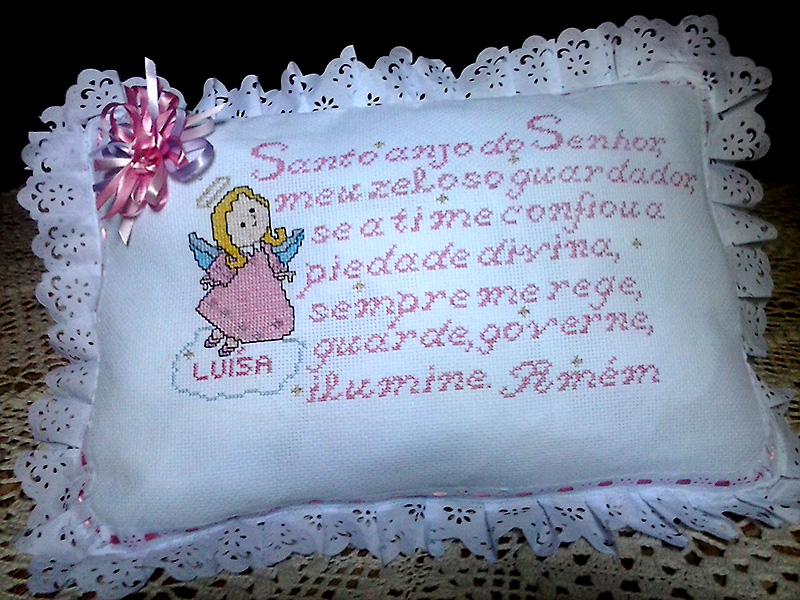 Santo anjo do Senhor,
meu zeloso guardador,
se a ti me confiou a
piedade divina,
sempre me rege,
guarde, governe,
ilumine. Amém
LUÍSA